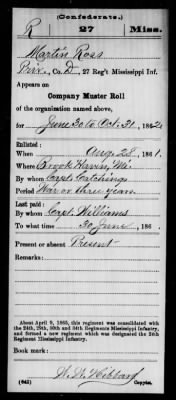 (Confederate.)
R 27 Miss.
Martin Ross
Priv., Co. D, 27 Reg't Mississippi Inf.
Appears on
Company Muster Roll
of the organization named above,
for June 30 to Oct 31, 1862.
Enlisted:
When Aug 28, 1861.
Where Brook Haven, Mi.
By whom Capt. Catching
Period War or three years
Last paid:
By whom Capt. Williams
To what time 30 June, 186 .
Present or absent Present
Remarks:
About April 9, 1865, this regiment was consolidated with
the 24th, 29th, 30th and 34th Regiments Mississippi Infantry,
and formed a new regiment which was designated the 24th
Regiment Mississippi Infantry.
Book mark:
(642) Copyist.